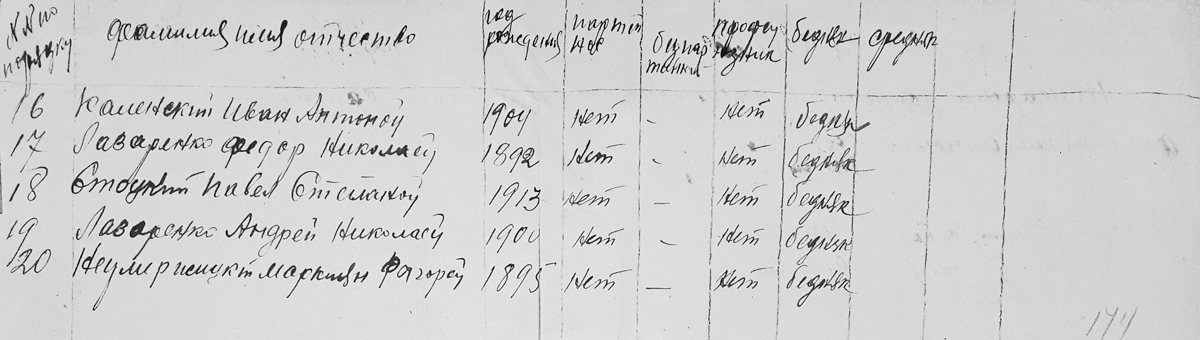 №№ по порядку фамилия имя отчество год рождения партий ность беспар тейный профсоюзник бедняк средняк
16 Каленский Иван Антонов 1904 Нет - Нет бедняк
17 Лазаренко Федор Николаев 1892 Нет - Нет бедняк
18 Стоцкий Павел Степанов 1913 Нет - Нет бедняк
19 Лазаренко Андрей Николаев 1900 Нет - Нет бедняк
20 1895 Нет - Нет бедняк